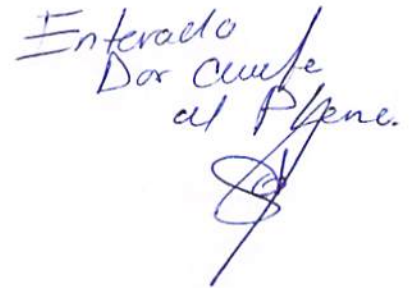 Enterado
Dar cuenta
al Pleno.